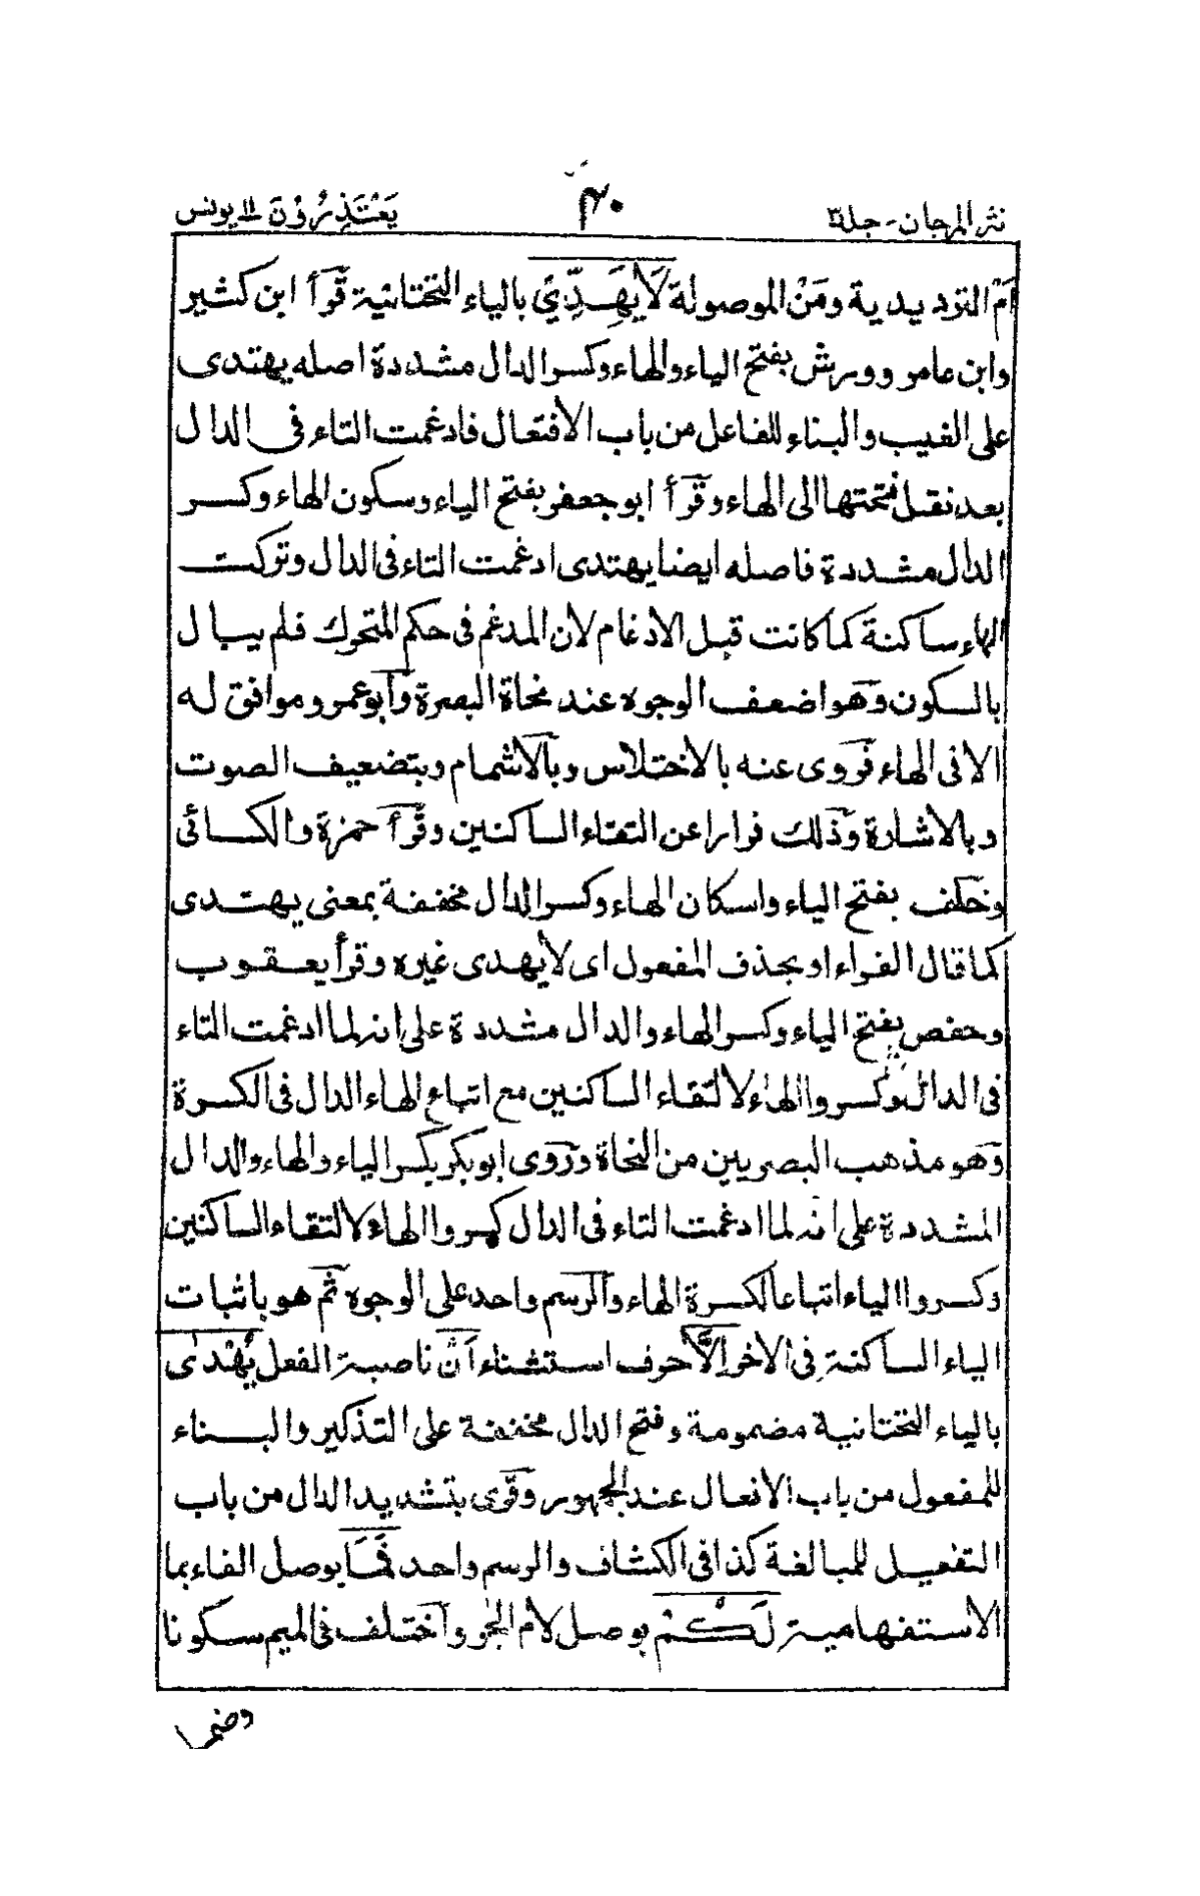 نثر المرجان - جلد٣
٤٠
يَعْتَذِرُوْنَ ١١ يونس
اَمْ الترديدية ومَنْ الموصولة لَا يَهِدِّيْ بالياء التحتانية قرأ ابن كثير
وابن عامر وورش بفتح الياء والهاء وكسر الدال مشددة اصله يهتدى
على الغيب والبناء للفاعل من باب الافتعال فادغمت التاء فى الدال
بعد نقل فتحتها الى الهاء وقرأ ابو جعفر بفتح الياء وسكون الهاء وكسر
الدال مشددة فاصله ايضا يهتدى ادغمت التاء فى الدال وتركت
الهاء ساكنة كما كانت قبل الادغام لان المدغم فى حكم المتحرك فلم يبال
بالسكون وهو اضعف الوجوه عند نحاة البصرة وابو عمرو موافق له
الا فى الهاء فروى عنه بالاختلاس وبالاشمام وبتضعيف الصوت
وبالاشارة وذلك فرارا عن التقاء الساكنين وقرأ حمزة والكسائى
وخلف بفتح الياء واسكان الهاء وكسر الدال مخففة بمعنى يهتدى
كما قال الفراء او بحذف المفعول اى لا يهدى غيره وقرأ يعقوب
وحفص بفتح الياء وكسر الهاء والدال مشددة على انه لما ادغمت التاء
فى الدال وكسروا الهاء لالتقاء الساكنين مع اتباع الهاء الدال فى الكسرة
وهو مذهب البصريين من النحاة وروى ابو بكر بكسر الياء والهاء والدال
المشددة على انه لما ادغمت التاء فى الدال كسروا الهاء لالتقاء الساكنين
وكسروا الياء اتباعا لكسرة الهاء والرسم واحد على الوجوه ثم هو باثبات
الياء الساكنة فى الاخر اِلَّا حرف استثناء اَنْ ناصبة الفعل يُهْدٰى
بالياء التحتانية مضمومة وفتح الدال مخففة على التذكير والبناء
للمفعول من باب الافعال عند الجمهور وقرى بتشديد الدال من باب
التفعيل للمبالغة كذا فى الكشاف والرسم واحد فَمَا بوصل الفاء بما
الاستفهامية لَكُمْ بوصل لام الجر واختلف فى الميم سكونا
وضما